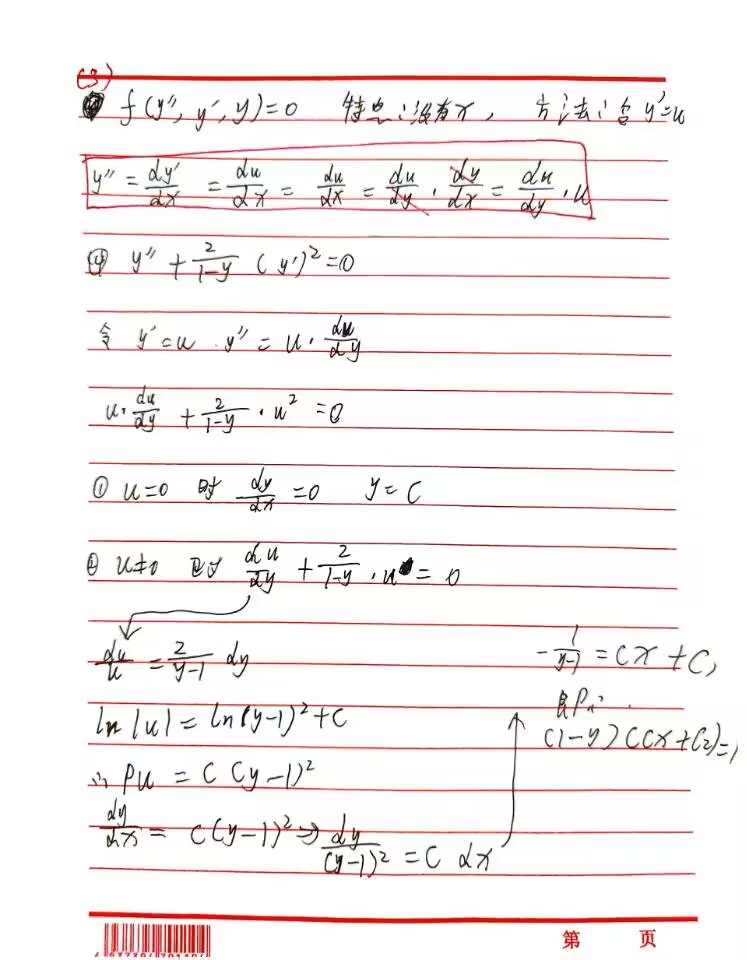 (3)
f(y'', y', y)=0 特点:没有x, 方法:令 y'=u
y'' = dy'/dx = du/dx = du/dx = du/dy · dy/dx = du/dy · u
例 y'' + 2/(1-y) (y')² = 0
令 y'=u . y'' = u · du/dy
u · du/dy + 2/(1-y) · u² = 0
① u=0 时 dy/dx = 0 y = C
② u≠0 时 du/dy + 2/(1-y) · u = 0
du/u = 2/(y-1) dy
ln|u| = ln(y-1)²+C
∴ Pu = C(y-1)²
dy/dx = C(y-1)² ⇒ dy/(y-1)² = C dx
-1/(y-1) = Cx + C₁
即
(1-y)(Cx+C₂)=1
第 页